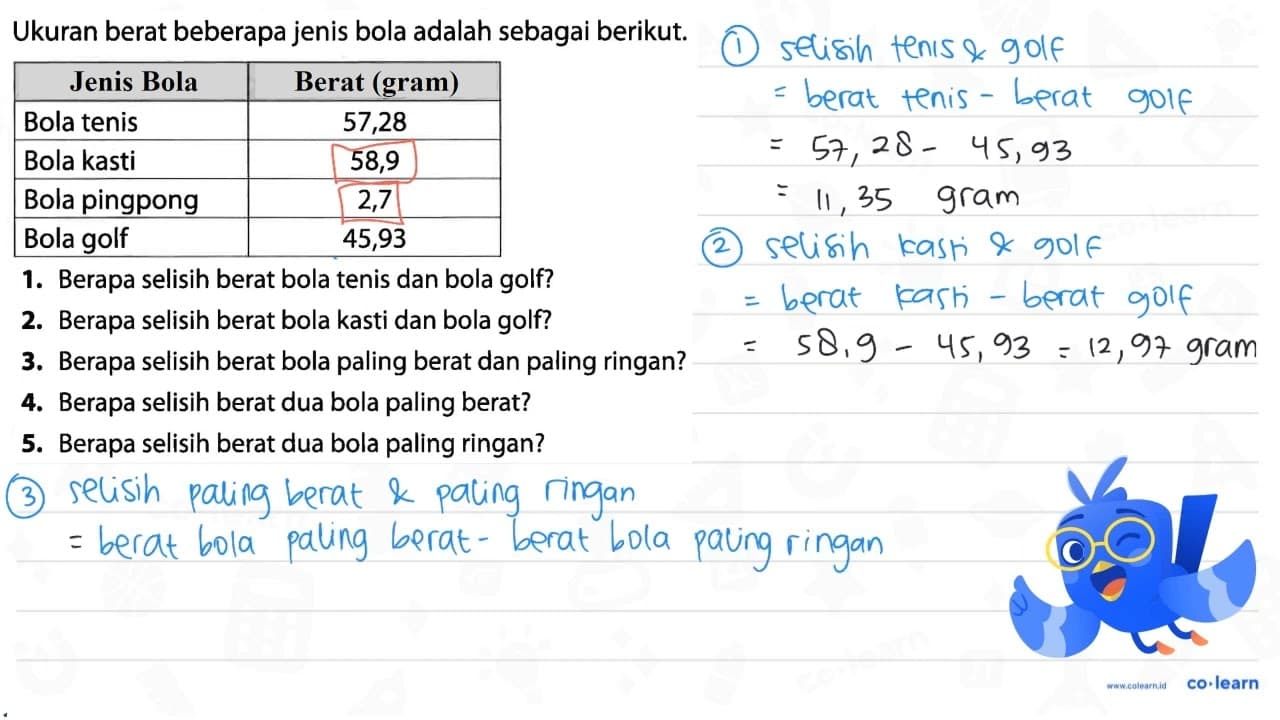 Ukuran berat beberapa jenis bola adalah sebagai berikut.
Jenis Bola Berat (gram)
Bola tenis 57,28
Bola kasti 58,9
Bola pingpong 2,7
Bola golf 45,93
1. Berapa selisih berat bola tenis dan bola golf?
2. Berapa selisih berat bola kasti dan bola golf?
3. Berapa selisih berat bola paling berat dan paling ringan?
4. Berapa selisih berat dua bola paling berat?
5. Berapa selisih berat dua bola paling ringan?
1 selisih tenis & golf
= berat tenis - berat golf
= 57,28 - 45,93
= 11,35 gram
2 selisih kasti & golf
= berat kasti - berat golf
= 58,9 - 45,93 = 12,97 gram
3 selisih paling berat & paling ringan
= berat bola paling berat - berat bola paling ringan
www.colearn.id co·learn